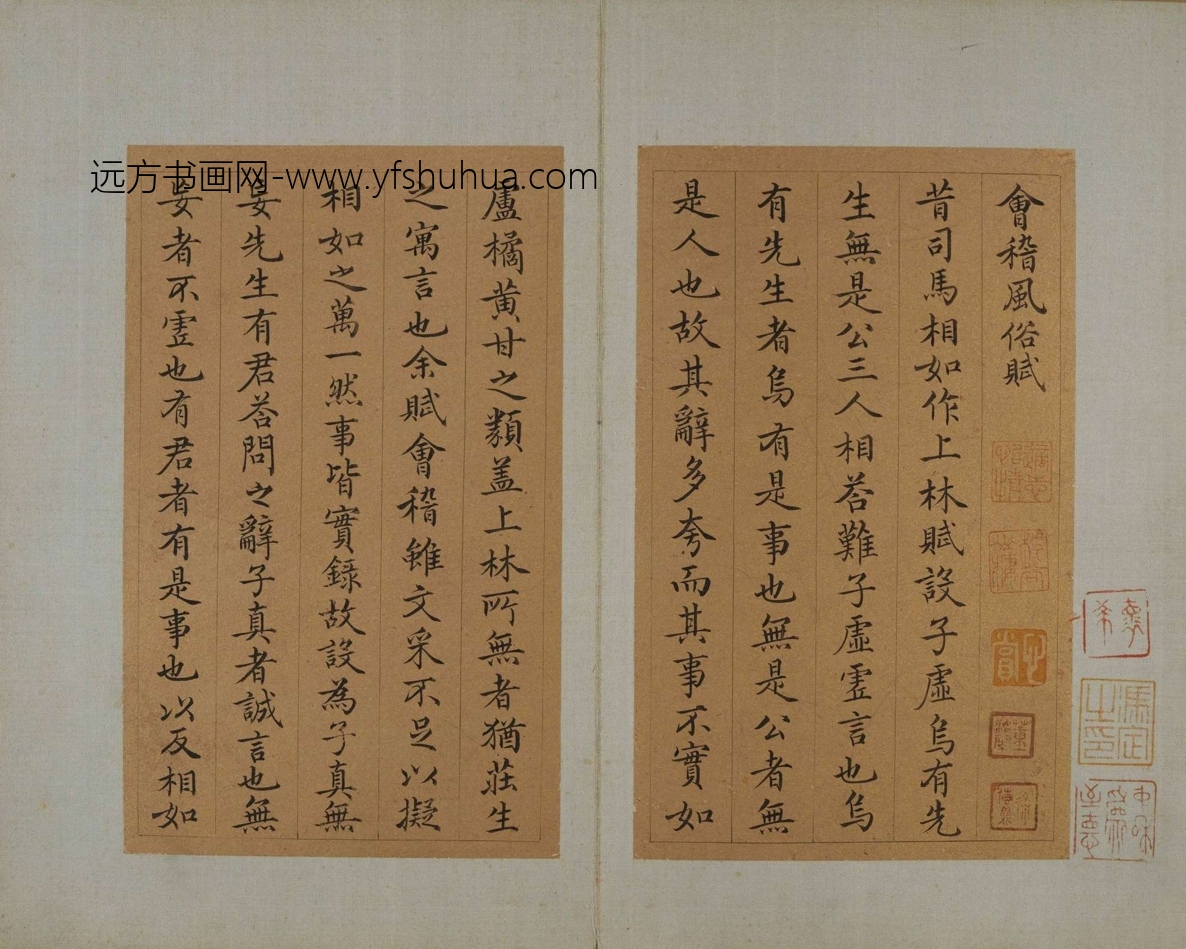 會稽風俗賦
昔司馬相如作上林賦設子虛烏有先
生無是公三人相荅難子虛虛言也烏
有先生者烏有是事也無是公者無
是人也故其辭多夸而其事不實如
盧橘黃甘之類盖上林所無者猶莊生
之寓言也余賦會稽雖文采不足以擬
相如之萬一然事皆實錄故設為子真無
妄先生有君荅問之辭子真者誠言也無
妄者不虛也有君者有是事也以反相如
远方书画网-www.yfshuhua.com